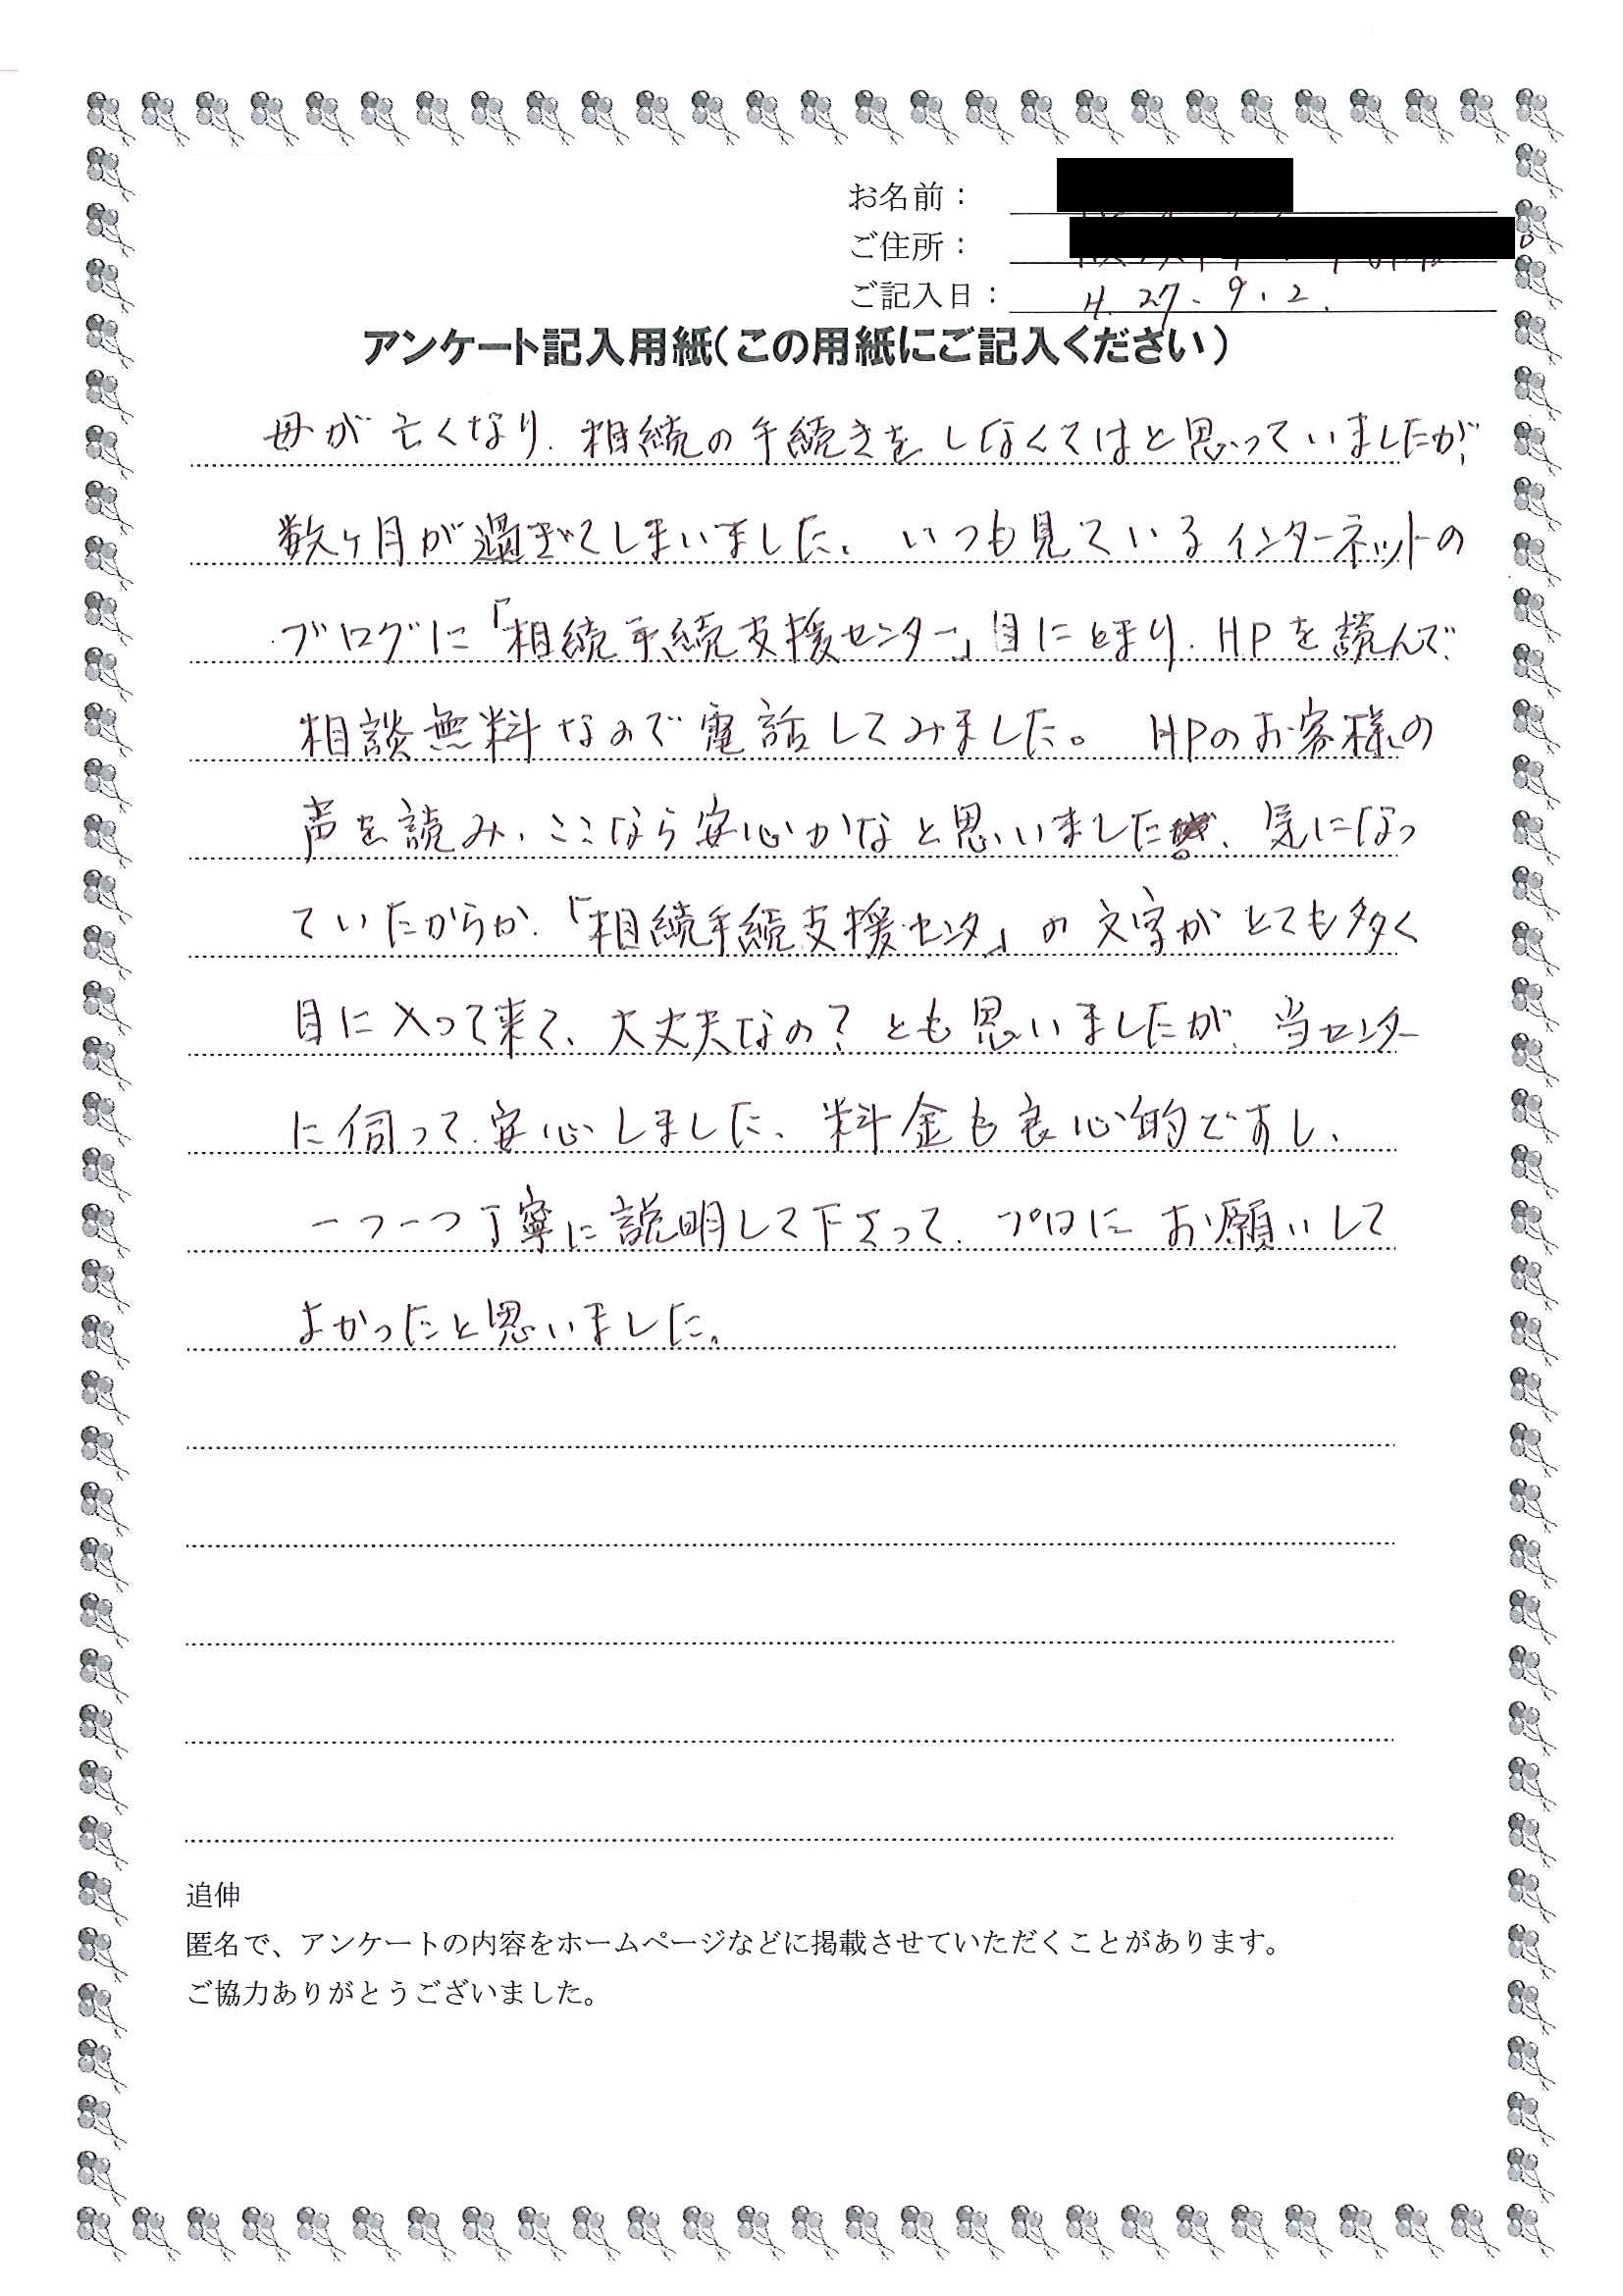 お名前：
ご住所：
ご記入日： H.27.9.2.
アンケート記入用紙（この用紙にご記入ください）
母が亡くなり、相続の手続きをしなくてはと思っていましたが、
数ヶ月が過ぎてしまいました。いつも見ているインターネットの
ブログに「相続手続支援センター」目にとまり、HPを読んで、
相談無料なので電話してみました。 HPのお客様の
声を読み、ここなら安心かなと思いました。気になっ
ていたからか、「相続手続支援センタ」の文字がとても多く
目に入って来て、大丈夫なの？とも思いましたが、当センター
に伺って、安心しました、料金も良心的ですし、
一つ一つ丁寧に説明して下さって、プロにお願いして
よかったと思いました。
追伸
匿名で、アンケートの内容をホームページなどに掲載させていただくことがあります。
ご協力ありがとうございました。